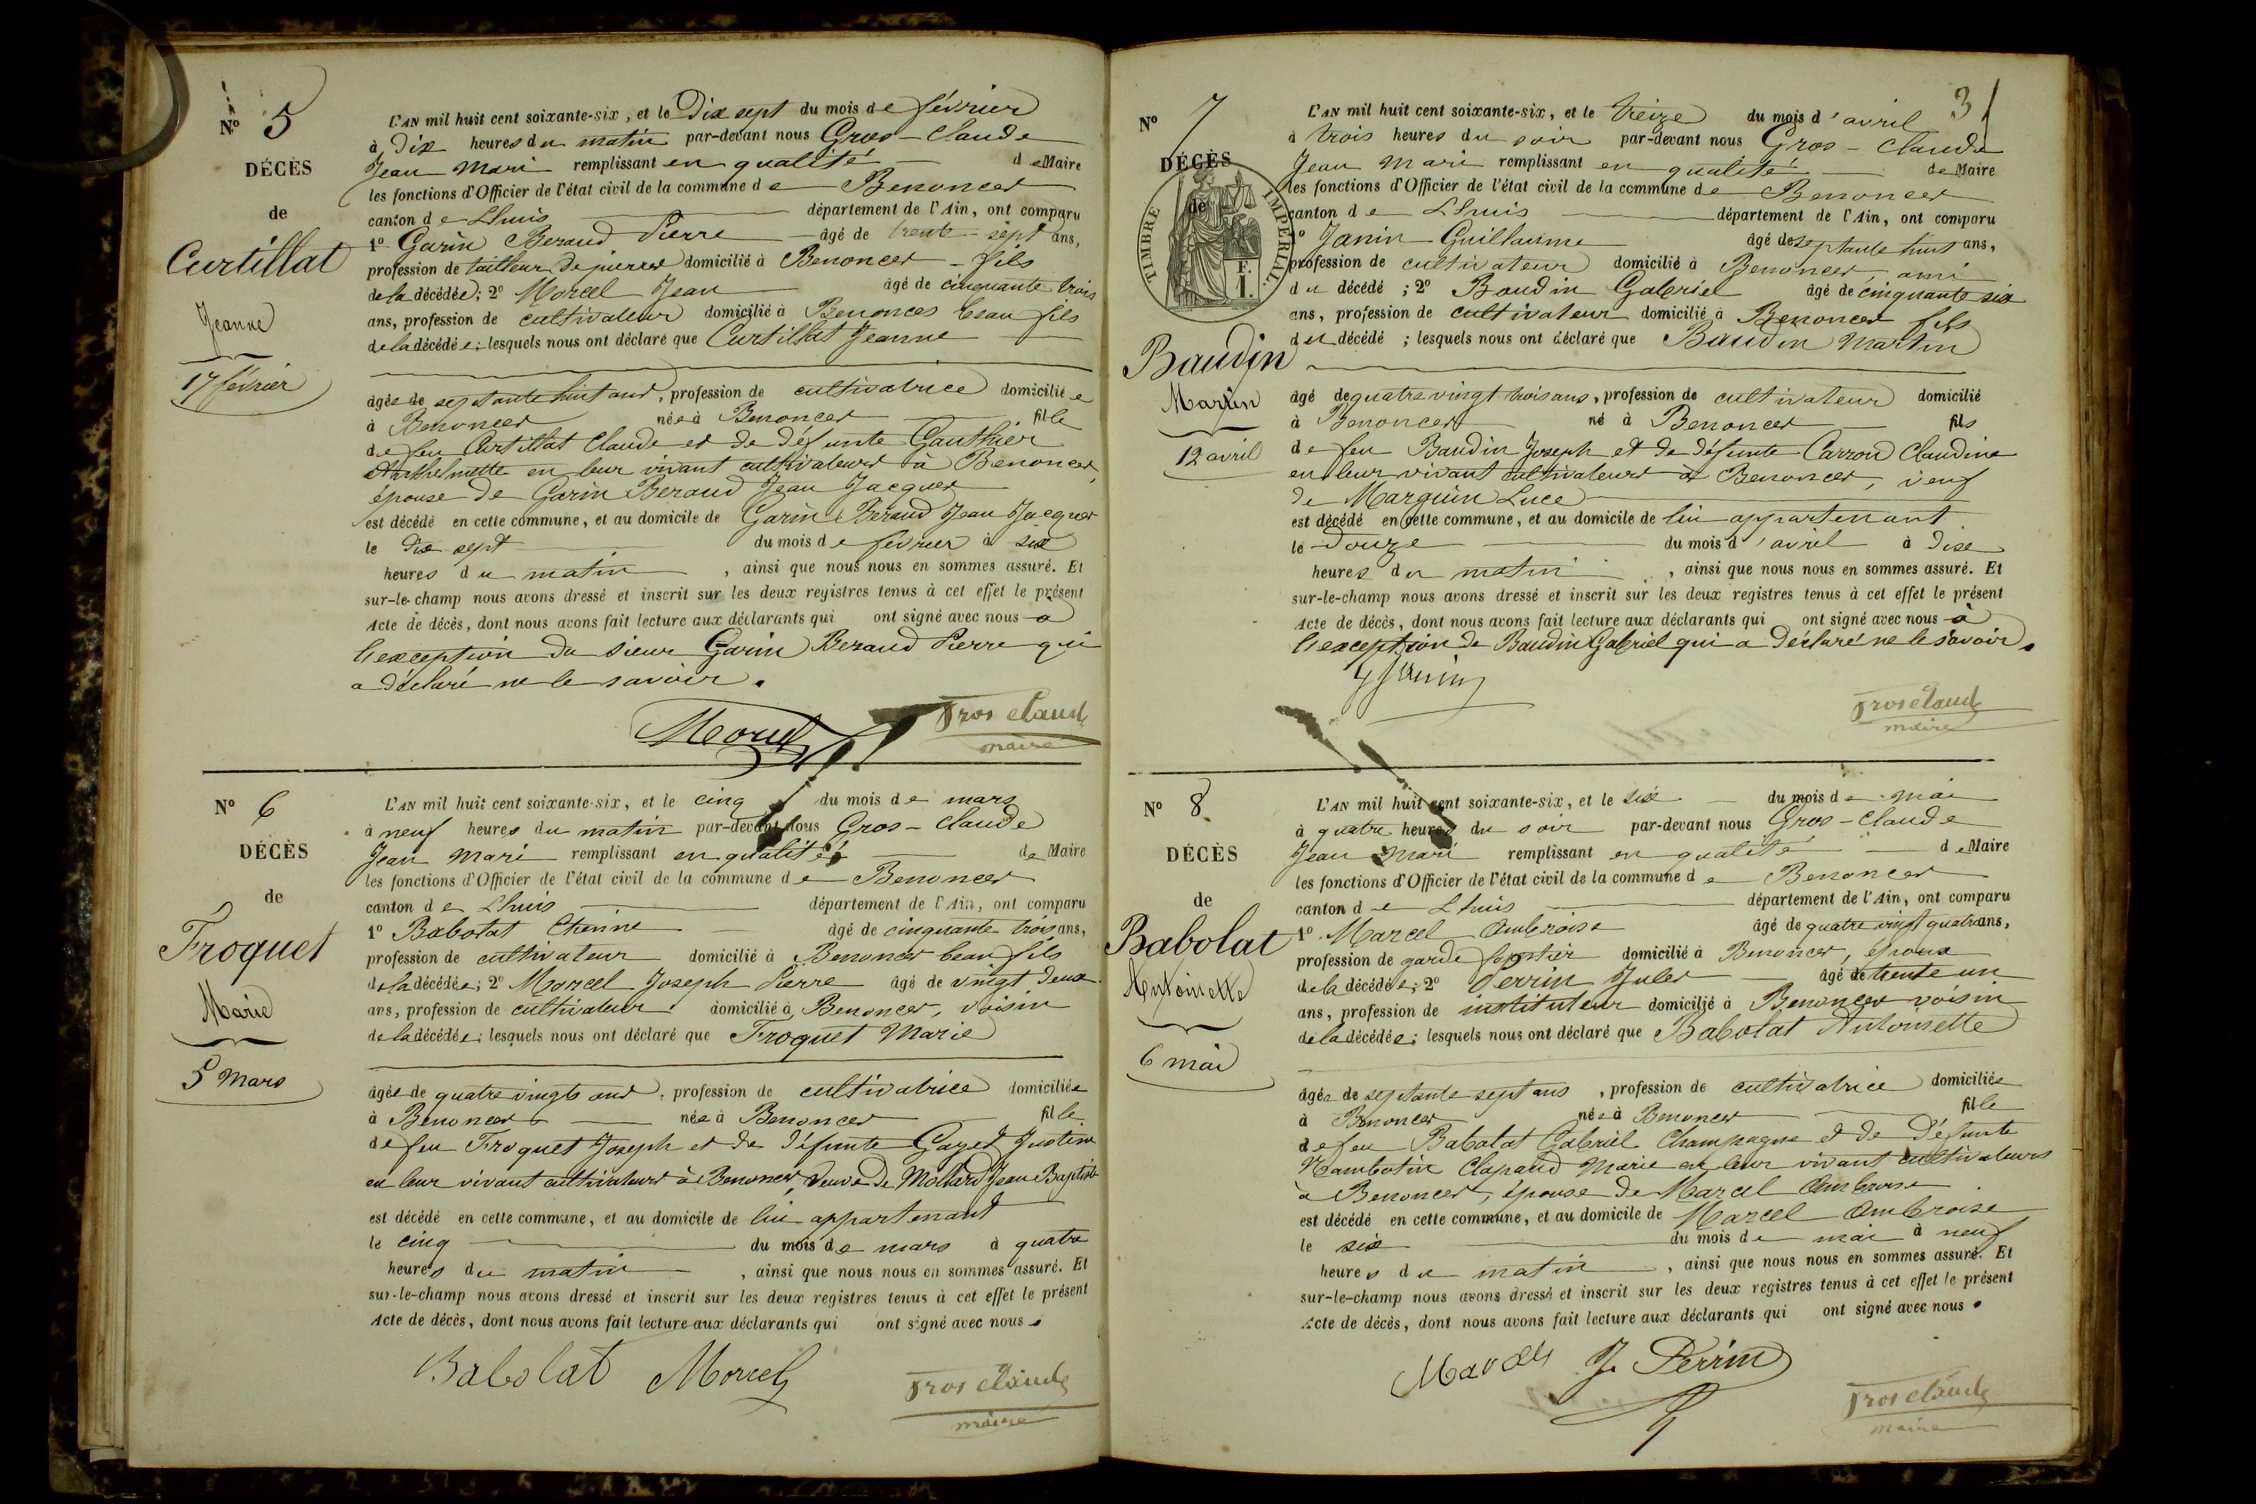 N° 5
DÉCÈS
de
Curtillat
Jeanne
17 février
L'AN mil huit cent soixante-six, et le Dix sept du mois de février
à Dix heures du matin par-devant nous Gros-Claude
Jean Mari remplissant en qualité de Maire
les fonctions d'Officier de l'état civil de la commune de Benonces
canton de Lhuis département de l'Ain, ont comparu
1° Garin Beraud Pierre âgé de trente-sept ans,
profession de tailleur de pierres domicilié à Benonces - fils
de la décédée; 2° Marcel Jean âgé de cinquante trois
ans, profession de cultivateur domicilié à Benonces beau fils
de la décédée; lesquels nous ont déclaré que Curtillat Jeanne
âgée de septante huit ans, profession de cultivatrice domiciliée
à Benonces née à Benonces fille
de feu Curtillat Claude et de défunte Gauthier
Anthelmette en leur vivant cultivateurs à Benonces,
épouse de Garin Beraud Jean Jacques
est décédé en cette commune, et au domicile de Garin Beraud Jean Jacques
le dix sept du mois de février à six
heures du matin, ainsi que nous nous en sommes assuré. Et
sur-le-champ nous avons dressé et inscrit sur les deux registres tenus à cet effet le présent
Acte de décès, dont nous avons fait lecture aux déclarants qui ont signé avec nous à
l'exception du sieur Garin Beraud Pierre qui
a déclaré ne le savoir.
Marcel Gros claude
maire
N° 6
DÉCÈS
de
Froquet
Marie
5 Mars
L'AN mil huit cent soixante-six, et le cinq du mois de mars
à neuf heures du matin par-devant nous Gros-Claude
Jean Mari remplissant en qualité de Maire
les fonctions d'Officier de l'état civil de la commune de Benonces
canton de Lhuis département de l'Ain, ont comparu
1° Babolat Etienne âgé de cinquante trois ans,
profession de cultivateur domicilié à Benonces beau fils
de la décédée; 2° Marcel Joseph Pierre âgé de vingt deux
ans, profession de cultivateur domicilié à Benonces, voisin
de la décédée; lesquels nous ont déclaré que Froquet Marie
âgée de quatre vingts ans, profession de cultivatrice domiciliée
à Benonces née à Benonces fille
de feu Froquet Joseph et de défunte Gayet Justine
en leur vivant cultivateurs à Benonces, Veuve de Mollard Jean Baptiste
est décédé en cette commune, et au domicile de lui appartenant
le cinq du mois de mars à quatre
heures du matin, ainsi que nous nous en sommes assuré. Et
sur-le-champ nous avons dressé et inscrit sur les deux registres tenus à cet effet le présent
Acte de décès, dont nous avons fait lecture aux déclarants qui ont signé avec nous.
Babolat Marcel Gros claude
maire
31
N° 7
DÉCÈS
de
TIMBRE IMPÉRIAL.
E. I.
Baudin
Martin
12 avril
L'AN mil huit cent soixante-six, et le treize du mois d'avril
à trois heures du soir par-devant nous Gros-Claude
Jean Mari remplissant en qualité de Maire
les fonctions d'Officier de l'état civil de la commune de Benonces
canton de Lhuis département de l'Ain, ont comparu
1° Janin Guillaume âgé de septante huit ans,
profession de cultivateur domicilié à Benonces ami
du décédé; 2° Baudin Gabriel âgé de cinquante six
ans, profession de cultivateur domicilié à Benonces fils
du décédé; lesquels nous ont déclaré que Baudin Martin
âgé de quatre vingt trois ans, profession de cultivateur domicilié
à Benonces né à Benonces fils
de feu Baudin Joseph et de défunte Carron Claudine
en leur vivant cultivateurs à Benonces, veuf
de Marguin Luce
est décédé en cette commune, et au domicile de lui appartenant
le Douze du mois d'avril à dix
heures du matin, ainsi que nous nous en sommes assuré. Et
sur-le-champ nous avons dressé et inscrit sur les deux registres tenus à cet effet le présent
Acte de décès, dont nous avons fait lecture aux déclarants qui ont signé avec nous à
l'exception de Baudin Gabriel qui a déclaré ne le savoir.
Gros claude
maire
N° 8
DÉCÈS
de
Babolat
Antoinette
6 mai
L'AN mil huit cent soixante-six, et le six du mois de mai
à quatre heures du soir par-devant nous Gros-Claude
Jean Mari remplissant en qualité de Maire
les fonctions d'Officier de l'état civil de la commune de Benonces
canton de Lhuis département de l'Ain, ont comparu
1° Marcel Ambroise âgé de quatre vingt quatre ans,
profession de garde forestier domicilié à Benonces, époux
de la décédée; 2° Perrin Jules âgé de trente un
ans, profession de instituteur domicilié à Benonces voisin
de la décédée; lesquels nous ont déclaré que Babolat Antoinette
âgée de septante sept ans, profession de cultivatrice domiciliée
à Benonces née à Benonces fille
de feu Babolat Gabriel Champagne et de Défunte
Clapand Marie en leur vivant cultivateurs
à Benonces, épouse de Marcel Ambroise
est décédé en cette commune, et au domicile de Marcel Ambroise
le six du mois de mai à neuf
heures du matin, ainsi que nous nous en sommes assuré. Et
sur-le-champ nous avons dressé et inscrit sur les deux registres tenus à cet effet le présent
Acte de décès, dont nous avons fait lecture aux déclarants qui ont signé avec nous.
Marcel J. Perrin Gros claude
maire